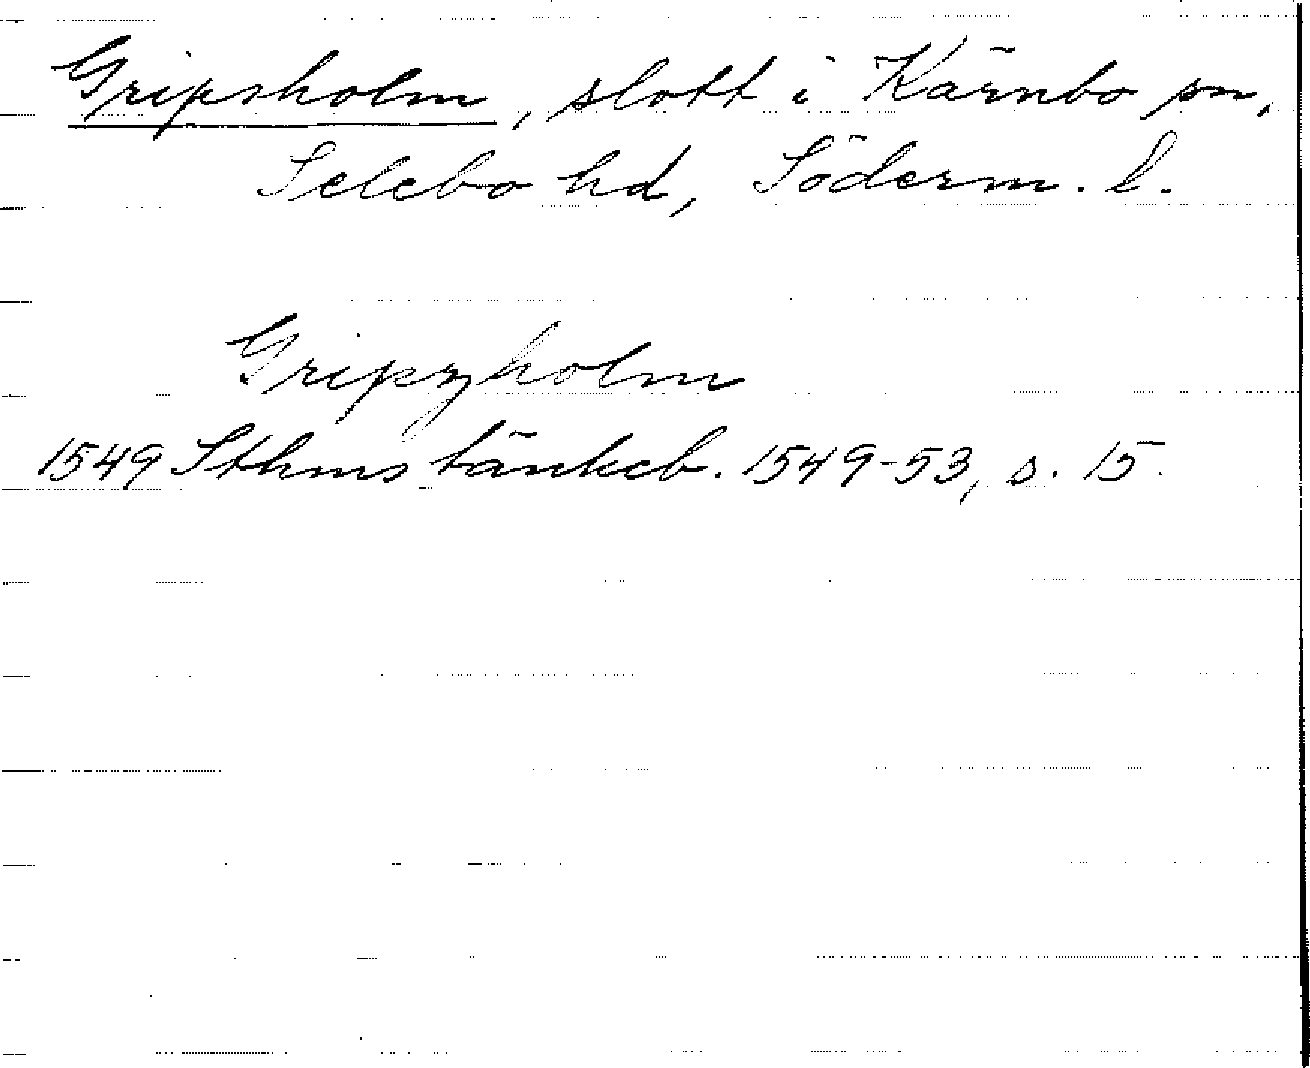 Gripsholm, slott i Kärnbo sn,
Selebo hd, Söderm. l.
Gripzholm
1549 Sthms tänkeb. 1549-53, s. 15.